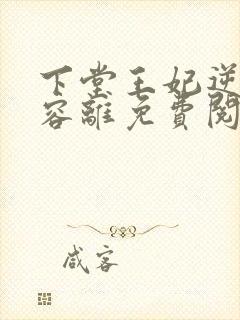 下堂王妃逆
容離免費閱
咸客